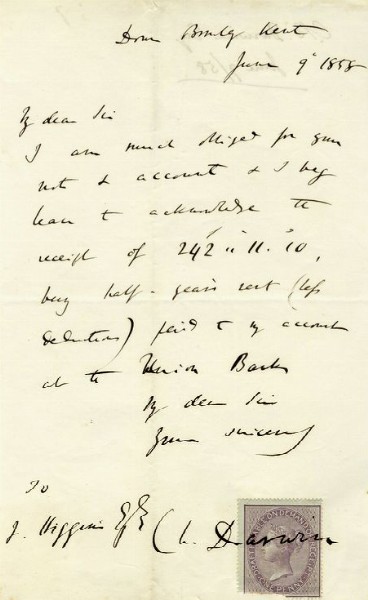 Down Bromley Kent
June 9 1858
My dear Sir
I am much obliged for your
note & account & I beg
leave to acknowledge the
receipt of 242 " 11. 10,
being half-year's rent (less
deductions) paid to my account
at the Union Bank
My dear Sir
Yours sincerely
To
J. Higgins Esq
Ch. Darwin